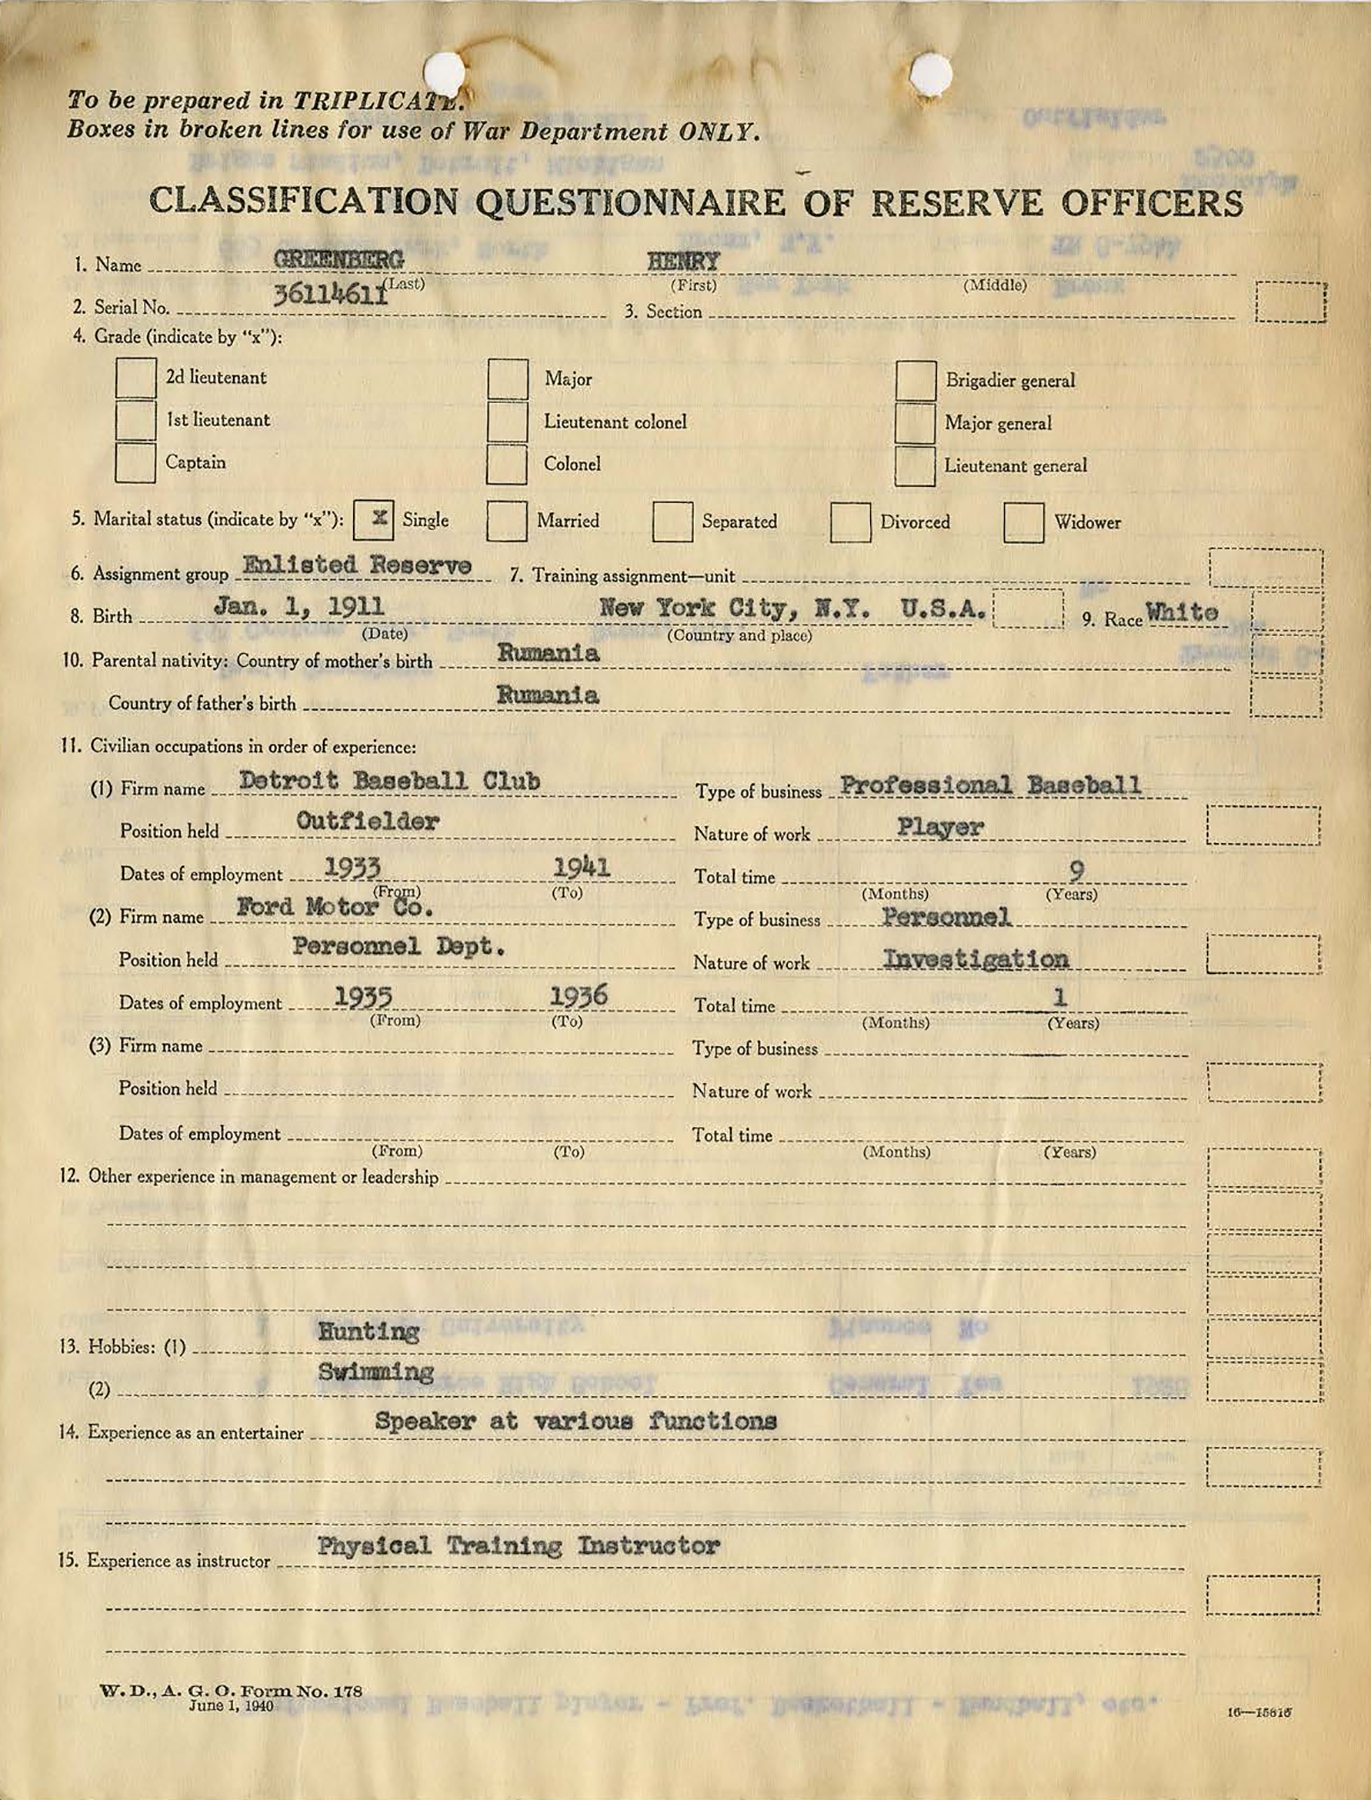 To be prepared in TRIPLICATE.
Boxes in broken lines for use of War Department ONLY.
CLASSIFICATION QUESTIONNAIRE OF RESERVE OFFICERS
1. Name GREENBERG HENRY
(Last) (First) (Middle)
2. Serial No. 36114611 3. Section
4. Grade (indicate by "x"):
2d lieutenant Major Brigadier general
1st lieutenant Lieutenant colonel Major general
Captain Colonel Lieutenant general
5. Marital status (indicate by "x"): X Single Married Separated Divorced Widower
6. Assignment group Enlisted Reserve 7. Training assignment—unit
8. Birth Jan. 1, 1911 New York City, N.Y. U.S.A. 9. Race White
(Date) (Country and place)
10. Parental nativity: Country of mother's birth Rumania
Country of father's birth Rumania
11. Civilian occupations in order of experience:
(1) Firm name Detroit Baseball Club Type of business Professional Baseball
Position held Outfielder Nature of work Player
Dates of employment 1933 1941 Total time 9
(From) (To) (Months) (Years)
(2) Firm name Ford Motor Co. Type of business Personnel
Position held Personnel Dept. Nature of work Investigation
Dates of employment 1935 1936 Total time 1
(From) (To) (Months) (Years)
(3) Firm name Type of business
Position held Nature of work
Dates of employment Total time
(From) (To) (Months) (Years)
12. Other experience in management or leadership
13. Hobbies: (1) Hunting
(2) Swimming
14. Experience as an entertainer Speaker at various functions
15. Experience as instructor Physical Training Instructor
W. D., A. G. O. Form No. 178
June 1, 1940
16—15616